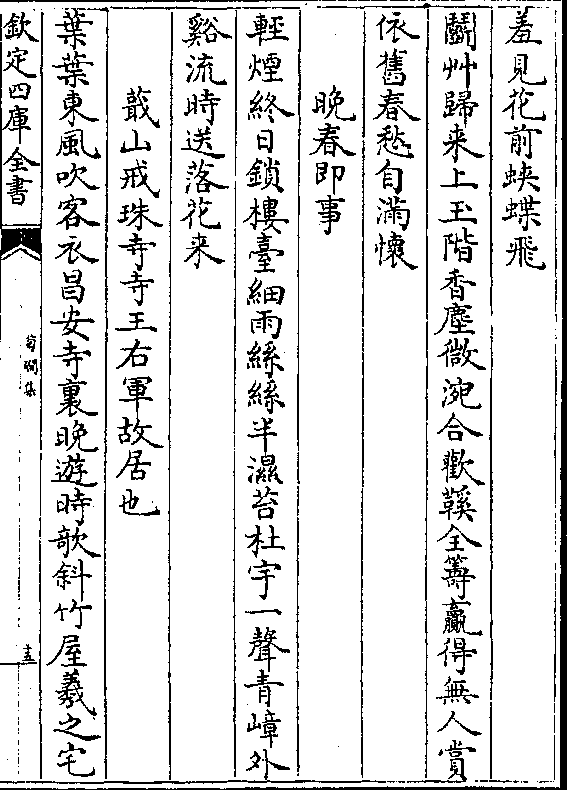 羞見花前蛺蝶飛
鬭艸歸来上玉階香塵微涴合歡鞵全籌贏得無人賞
依舊春愁自滿懷
晚春即事
輕煙終日鎖樓臺細雨絲絲半濕苔杜宇一聲青嶂外
谿流時送落花来
蕺山戒珠寺寺王右軍故居也
葉葉東風吹客衣昌安寺裏晚遊時欹斜竹屋羲之宅
欽定四庫全書
荀㵎集
十五